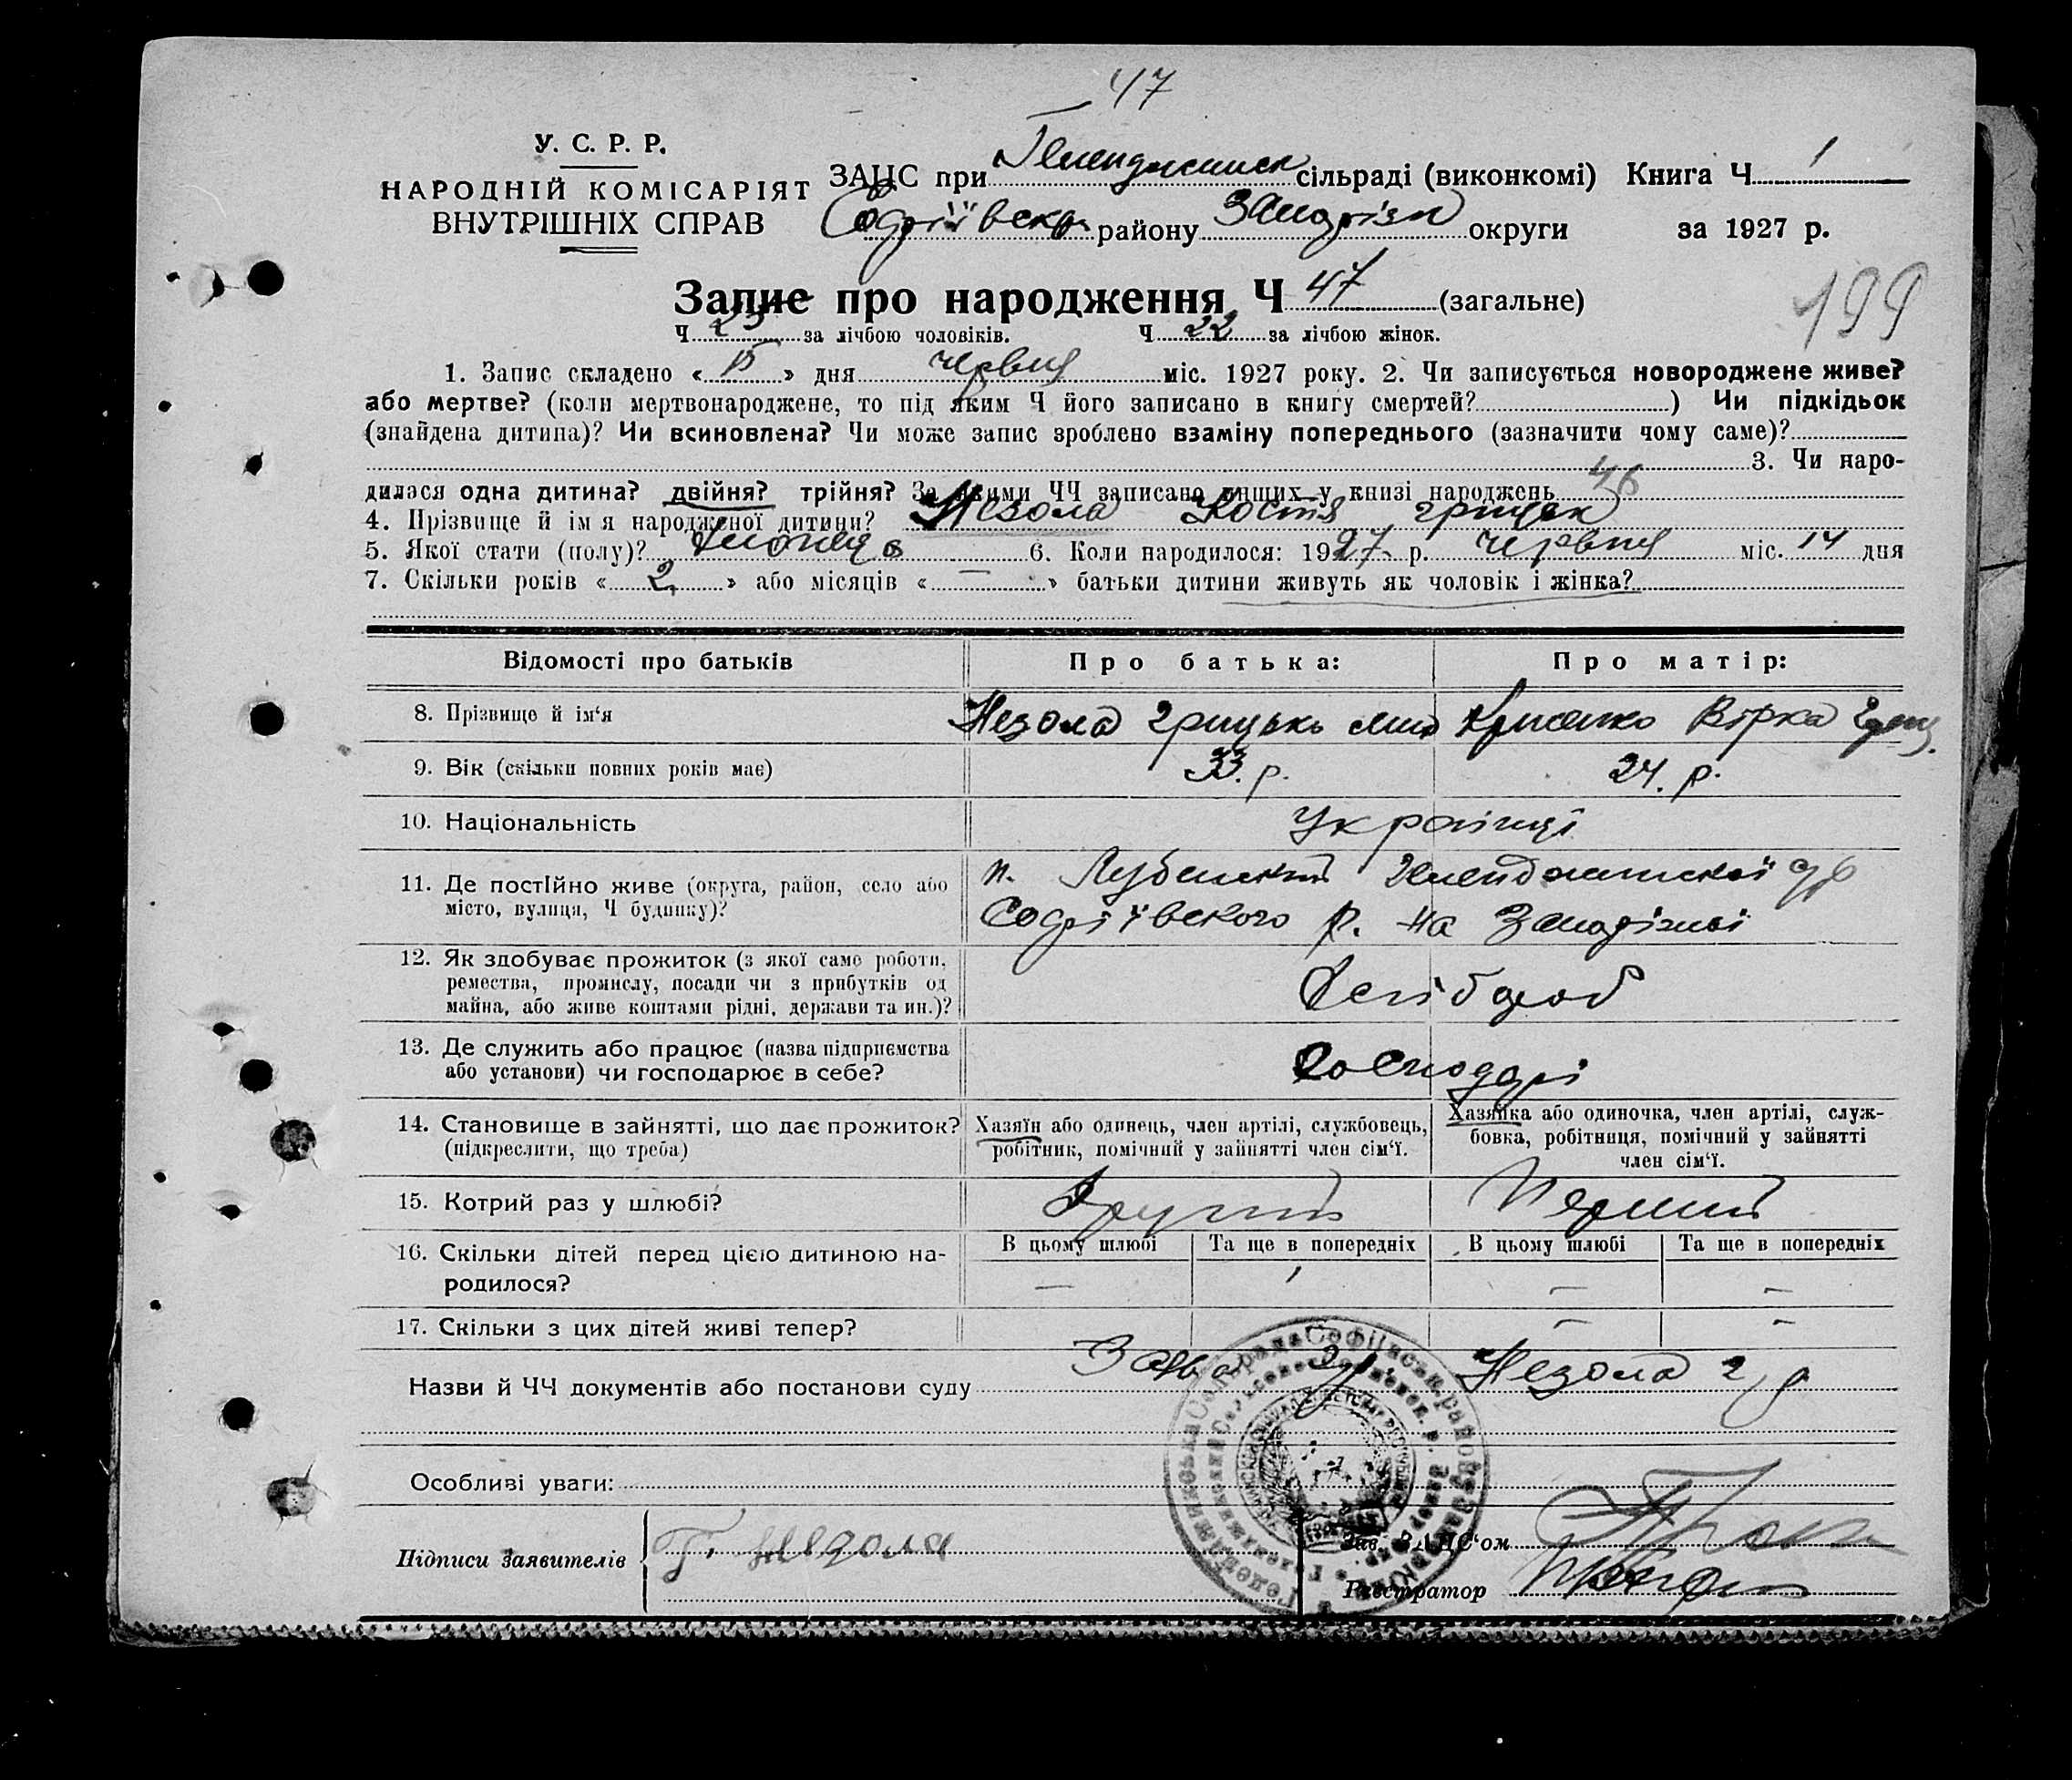 47
У. С. Р. Р.
НАРОДНІЙ КОМІСАРІЯТ
ВНУТРІШНІХ СПРАВ
ЗАЦС при сільраді (виконкомі) Книга Ч 1
району округи за 1927 р.
Запис про народження Ч 47 (загальне)
199
Ч 25 за лічбою чоловіків. Ч 22 за лічбою жінок.
1. Запис складено « 15 » дня червня міс. 1927 року. 2. Чи записується новороджене живе?
або мертве? (коли мертвонароджене, то під яким Ч його записано в книгу смертей?) Чи підкідьок
(знайдена дитина)? Чи всиновлена? Чи може запис зроблено взаміну попереднього (зазначити чому саме)?
3. Чи наро-
дилася одна дитина? двійня? трійня? За якими ЧЧ записано инших у книзі народжень 46
4. Прізвище й ім я народженої дитини? Незола Костя грицьк
5. Якої стати (полу)? 6. Коли народилося: 1927 р. червня міс. 14 дня
7. Скільки років « 2 » або місяців « — » батьки дитини живуть як чоловік і жінка?
Відомості про батьків Про батька: Про матір:
8. Прізвище й ім'я Незола Грицько Вірка
9. Вік (скільки повних років має) 33. р. 24. р.
10. Національність Українці
11. Де постІйно живе (округа, район, село або
місто, вулиця, Ч будинку)?
р. на
12. Як здобуває прожиток (з якої саме роботи,
ремества, промислу, посади чи з прибутків од
майна, або живе коштами рідні, держави та ин.)?
Хлібороб
13. Де служить або працює (назва підприємства
або установи) чи господарює в себе?
Господарі
14. Становище в зайнятті, що дає прожиток?
(підкреслити, що треба)
Хазяїн або одинець, член артілі, службовець,
робітник, помічний у зайнятті член сім'ї.
Хазяйка або одиночка, член артілі, служ-
бовка, робітниця, помічний у зайнятті
член сім'ї.
15. Котрий раз у шлюбі? Другий Перший
16. Скільки дітей перед цією дитиною на-
родилося?
В цьому шлюбі Та ще в попередніх В цьому шлюбі Та ще в попередніх
— 1 — —
17. Скільки з цих дітей живі тепер? — —
Назви й ЧЧ документів або постанови суду Незола
Особливі уваги:
Підписи заявителів Г. Незола
Зав. ЗАПС'ом
Реєстратор